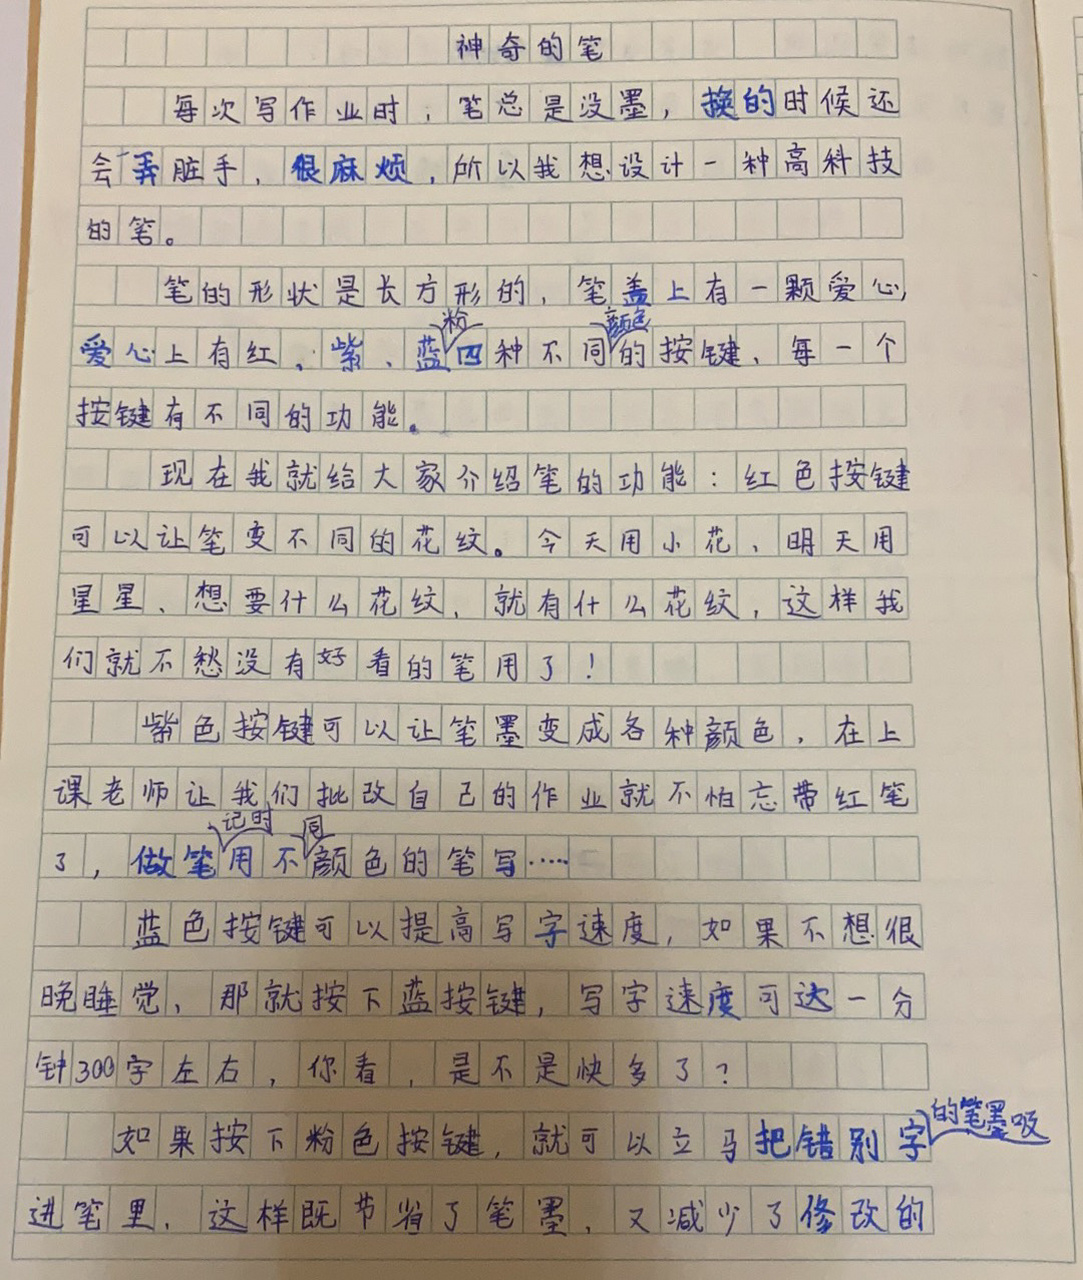 神奇的笔
每次写作业时，笔总是没墨，换的时候还
会弄脏手，很麻烦，所以我想设计一种高科技
的笔。
笔的形状是长方形的，笔盖上有一颗爱心，
爱心上有红、紫、蓝粉四种不同颜色的按键、每一个
按键有不同的功能。
现在我就给大家介绍笔的功能：红色按键
可以让笔变不同的花纹。今天用小花、明天用
星星、想要什么花纹，就有什么花纹，这样我
们就不愁没有好看的笔用了！
紫色按键可以让笔墨变成各种颜色，在上
课老师让我们批改自己的作业就不怕忘带红笔
了，做笔记时用不同颜色的笔写……
蓝色按键可以提高写字速度，如果不想很
晚睡觉、那就按下蓝按键，写字速度可达一分
钟300字左右，你看，是不是快多了？
如果按下粉色按键，就可以立马把错别字的笔墨吸
进笔里、这样既节省了笔墨、又减少了修改的